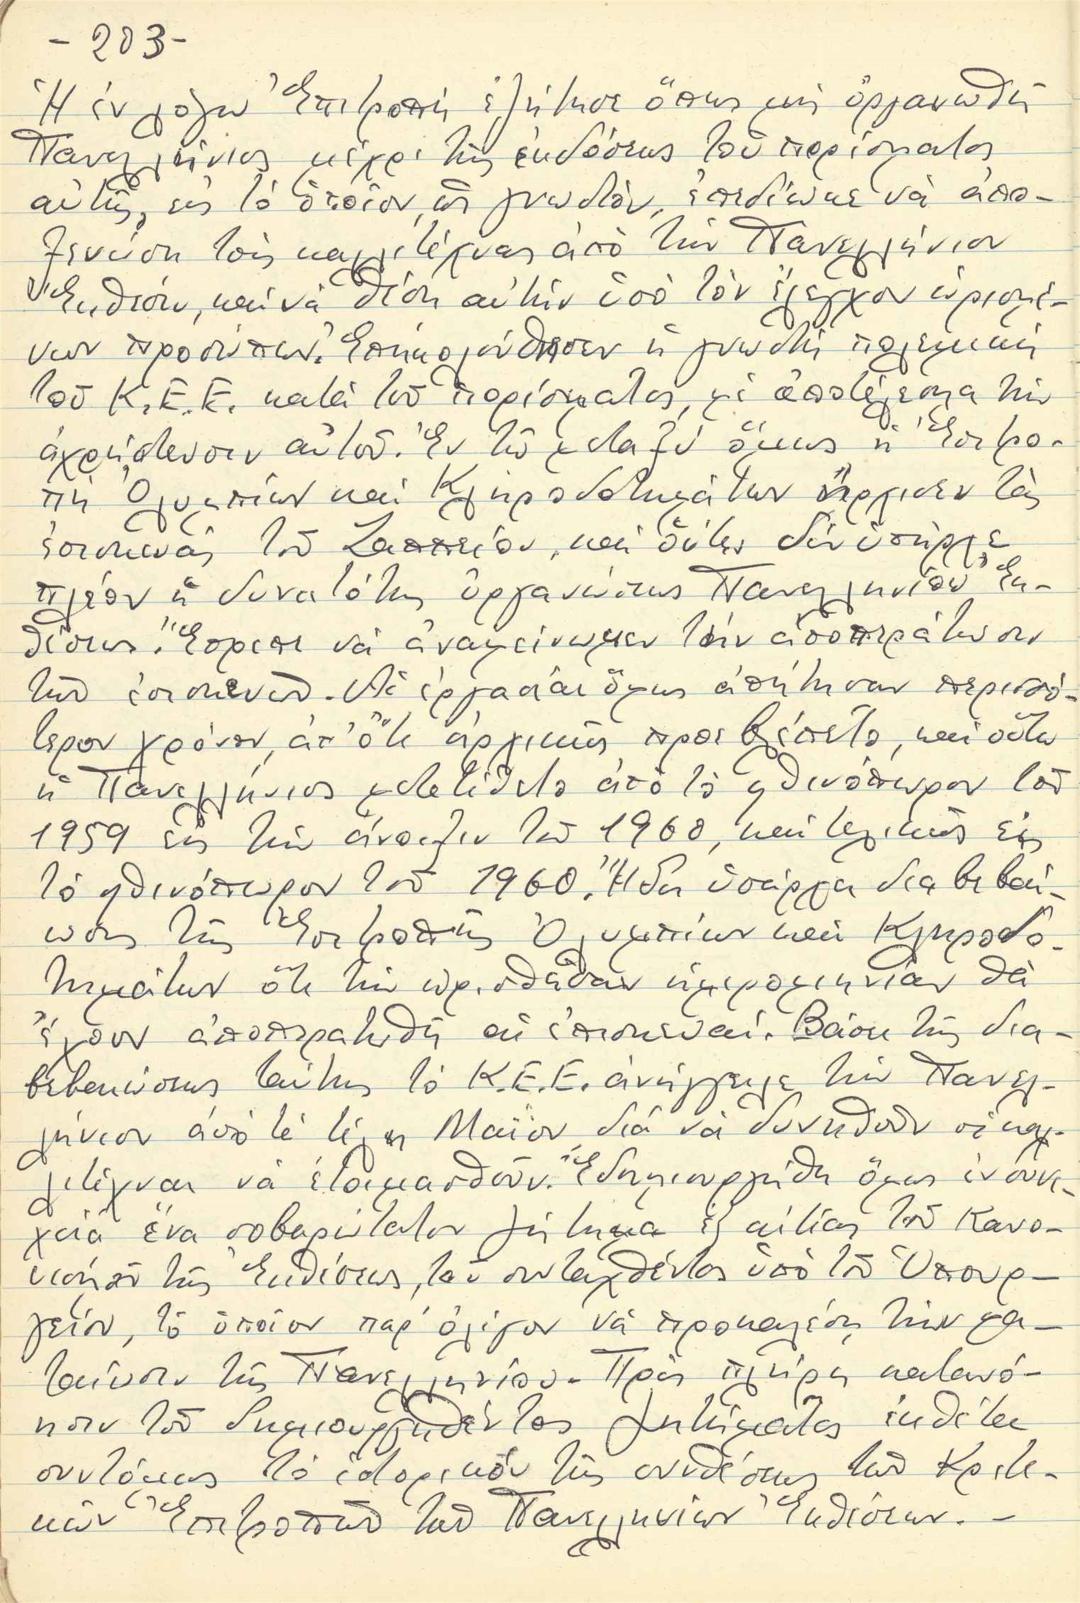 -203-
Ἡ ἐν λόγῳ Ἐπιτροπή ἐζήτησε ὅπως μή ὀργανωθῇ
Πανελλήνιος μέχρι τῆς ἐκδόσεως τοῦ πορίσματος
αὐτῆς, εἰς τό ὁποῖον, ὡς γνωστόν, ἐπεδίωκε νά ἀπο-
ξενώσῃ τούς καλλιτέχνας ἀπό τήν Πανελλήνιον
Ἔκθεσιν, καί νά θέσῃ αὐτήν ὑπό τόν ἔλεγχον ὡρισμέ-
νων προσώπων. Ἐπηκολούθησεν ἡ γνωστή πολεμική
τοῦ Κ.Ε.Ε. κατά τοῦ πορίσματος, μέ ἀποτέλεσμα τήν
ἀχρήστευσιν αὐτοῦ. Ἐν τῷ μεταξύ ὅμως ἡ Ἐπιτρο-
πή Ὀλυμπίων καί Κληροδοτημάτων ἤρχισεν τάς
ἐπισκευάς τοῦ Ζαππείου, καί οὕτω δέν ὑπῆρχε
πλέον ἡ δυνατότης ὀργανώσεως Πανελληνίου Ἐκ-
θέσεως. Ἔπρεπε νά ἀναμείνωμεν τήν ἀποπεράτωσιν
τῶν ἐπισκευῶν. Αἱ ἐργασίαι ὅμως ἀπῄτησαν περισσό-
τερον χρόνον, ἀπ' ὅτι ἀρχικῶς προεβλέπετο, καί οὕτω
ἡ Πανελλήνιος μετετίθετο ἀπό τό φθινόπωρον τοῦ
1959 εἰς τήν ἄνοιξιν τοῦ 1960, καί τελικῶς εἰς
τό φθινόπωρον τοῦ 1960. Ἤδη ὑπάρχει διαβεβαί-
ωσις τῆς Ἐπιτροπῆς Ὀλυμπίων καί Κληροδο-
τημάτων ὅτι τήν ὁρισθεῖσαν ἡμερομηνίαν θά
ἔχουν ἀποπερατωθῆ αἱ ἐπισκευαί. Βάσει τῆς δια-
βεβαιώσεως ταύτης τό Κ.Ε.Ε. ἀνήγγειλε τήν Πανελ-
λήνιον ἀπό τά τέλη Μαΐου, διά νά δυνηθοῦν οἱ καλ-
λιτέχναι νά ἑτοιμασθοῦν. Ἐδημιουργήθη ὅμως ἐν συνε-
χείᾳ ἕνα σοβαρώτατον ζήτημα ἐξ αἰτίας τοῦ Κανο-
νισμοῦ τῆς Ἐκθέσεως, τοῦ συνταχθέντος ὑπό τοῦ Ὑπουρ-
γείου, τό ὁποῖον παρ' ὀλίγον νά προκαλέσῃ τήν μα-
ταίωσιν τῆς Πανελληνίου. Πρός πλήρη κατανό-
ησιν τοῦ δημιουργηθέντος ζητήματος ἐκθέτω
συντόμως τό ἱστορικόν τῆς συνθέσεως τῶν Κριτι-
κῶν Ἐπιτροπῶν τῶν Πανελληνίων Ἐκθέσεων. -